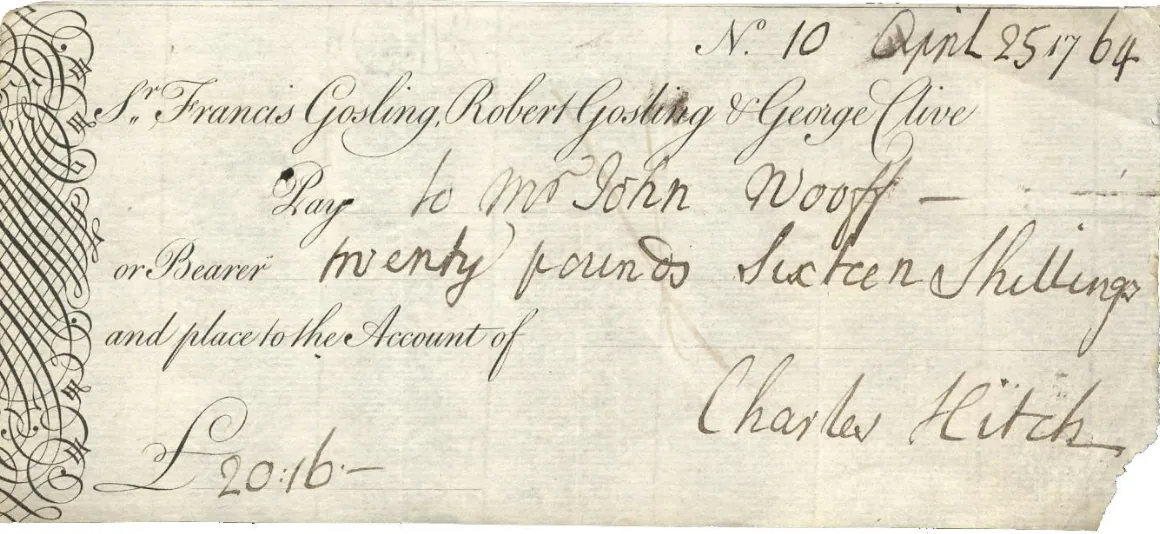 No. 10 April 25 1764
Sr. Francis Gosling, Robert Gosling & George Clive
Pay to Mr John Wooff —
or Bearer twenty pounds Sixteen Shillings
and place to the Account of
Charles Hitch
£ 20:16:—